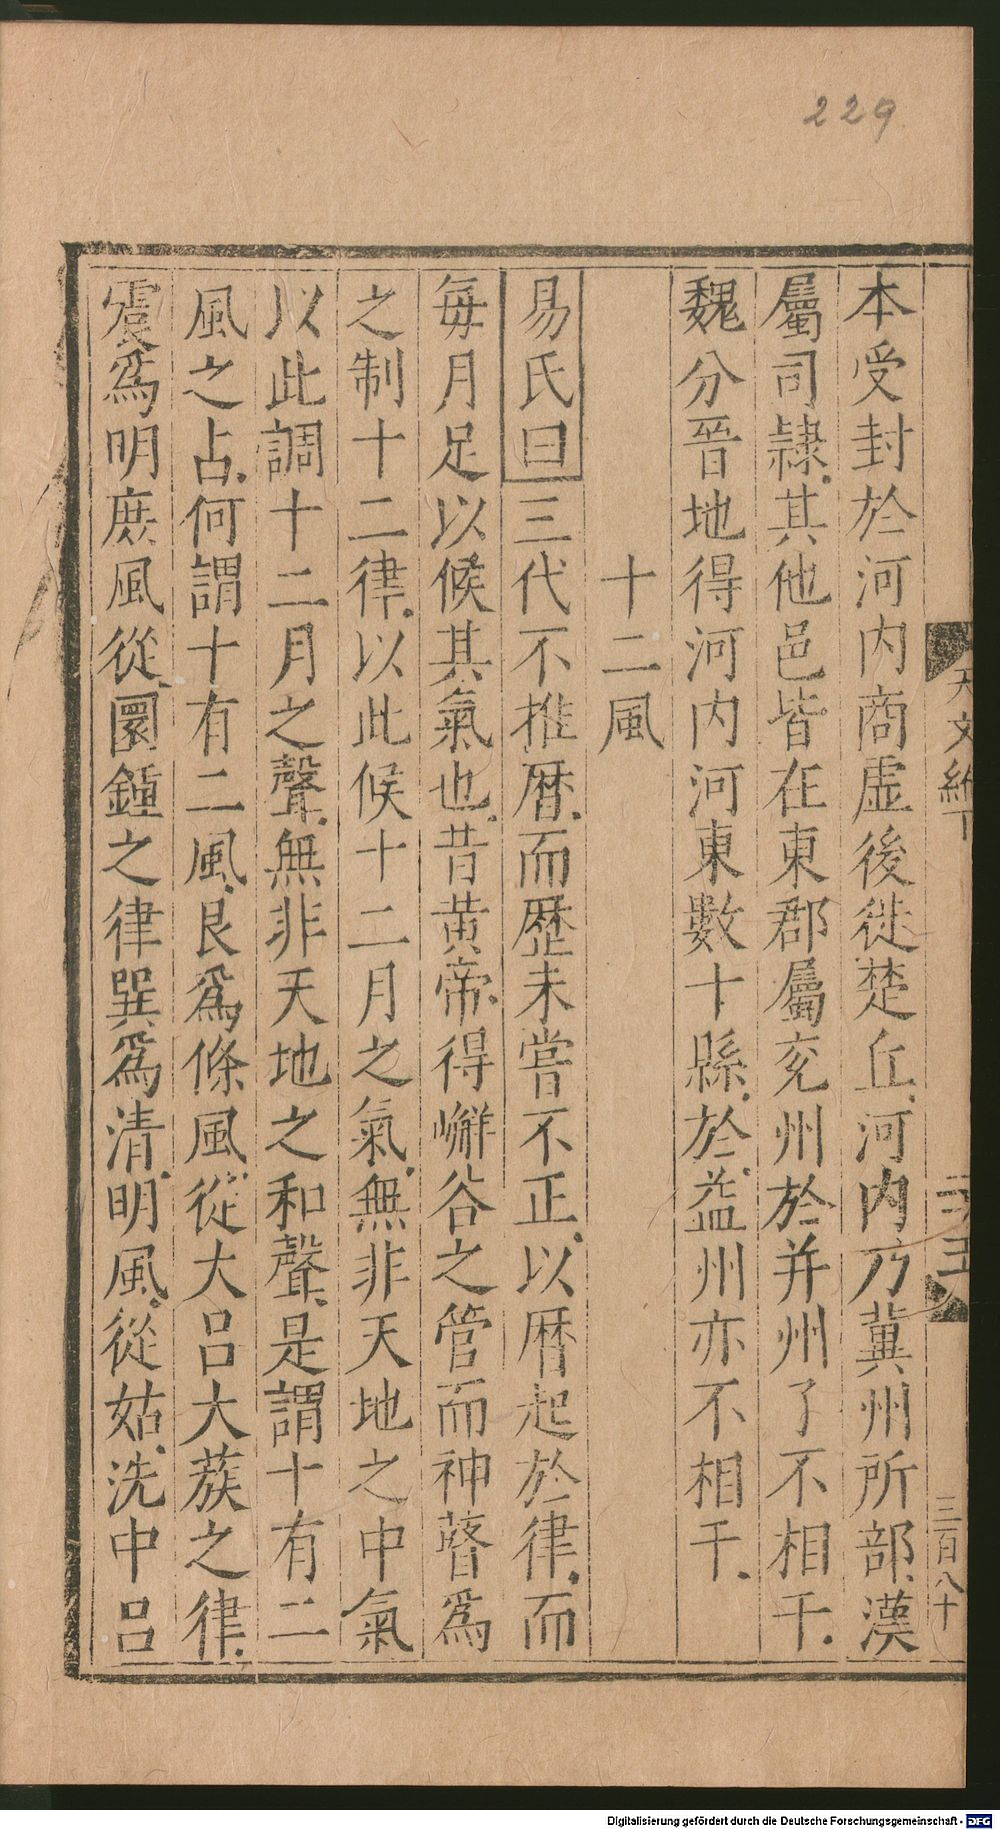 229
天文
下
三百八十
本受封於河內商虛後徙楚丘河內乃冀州所部漢
屬司隷其他邑皆在東郡屬兖州於并州了不相干
魏分晉地得河內河東數十縣於益州亦不相干
十二風
易氏曰三代不推暦而歴未嘗不正以暦起於律而
每月足以候其氣也昔黃帝得嶰谷之管而神瞽爲
之制十二律以此候十二月之氣無非天地之中氣
以此調十二月之聲無非天地之和聲是謂十有二
風之占何謂十有二風艮爲條風從大呂大蔟之律
震爲明庶風從圜鍾之律巽爲清明風從姑洗中呂
Digitalisierung gefördert durch die Deutsche Forschungsgemeinschaft - DFG